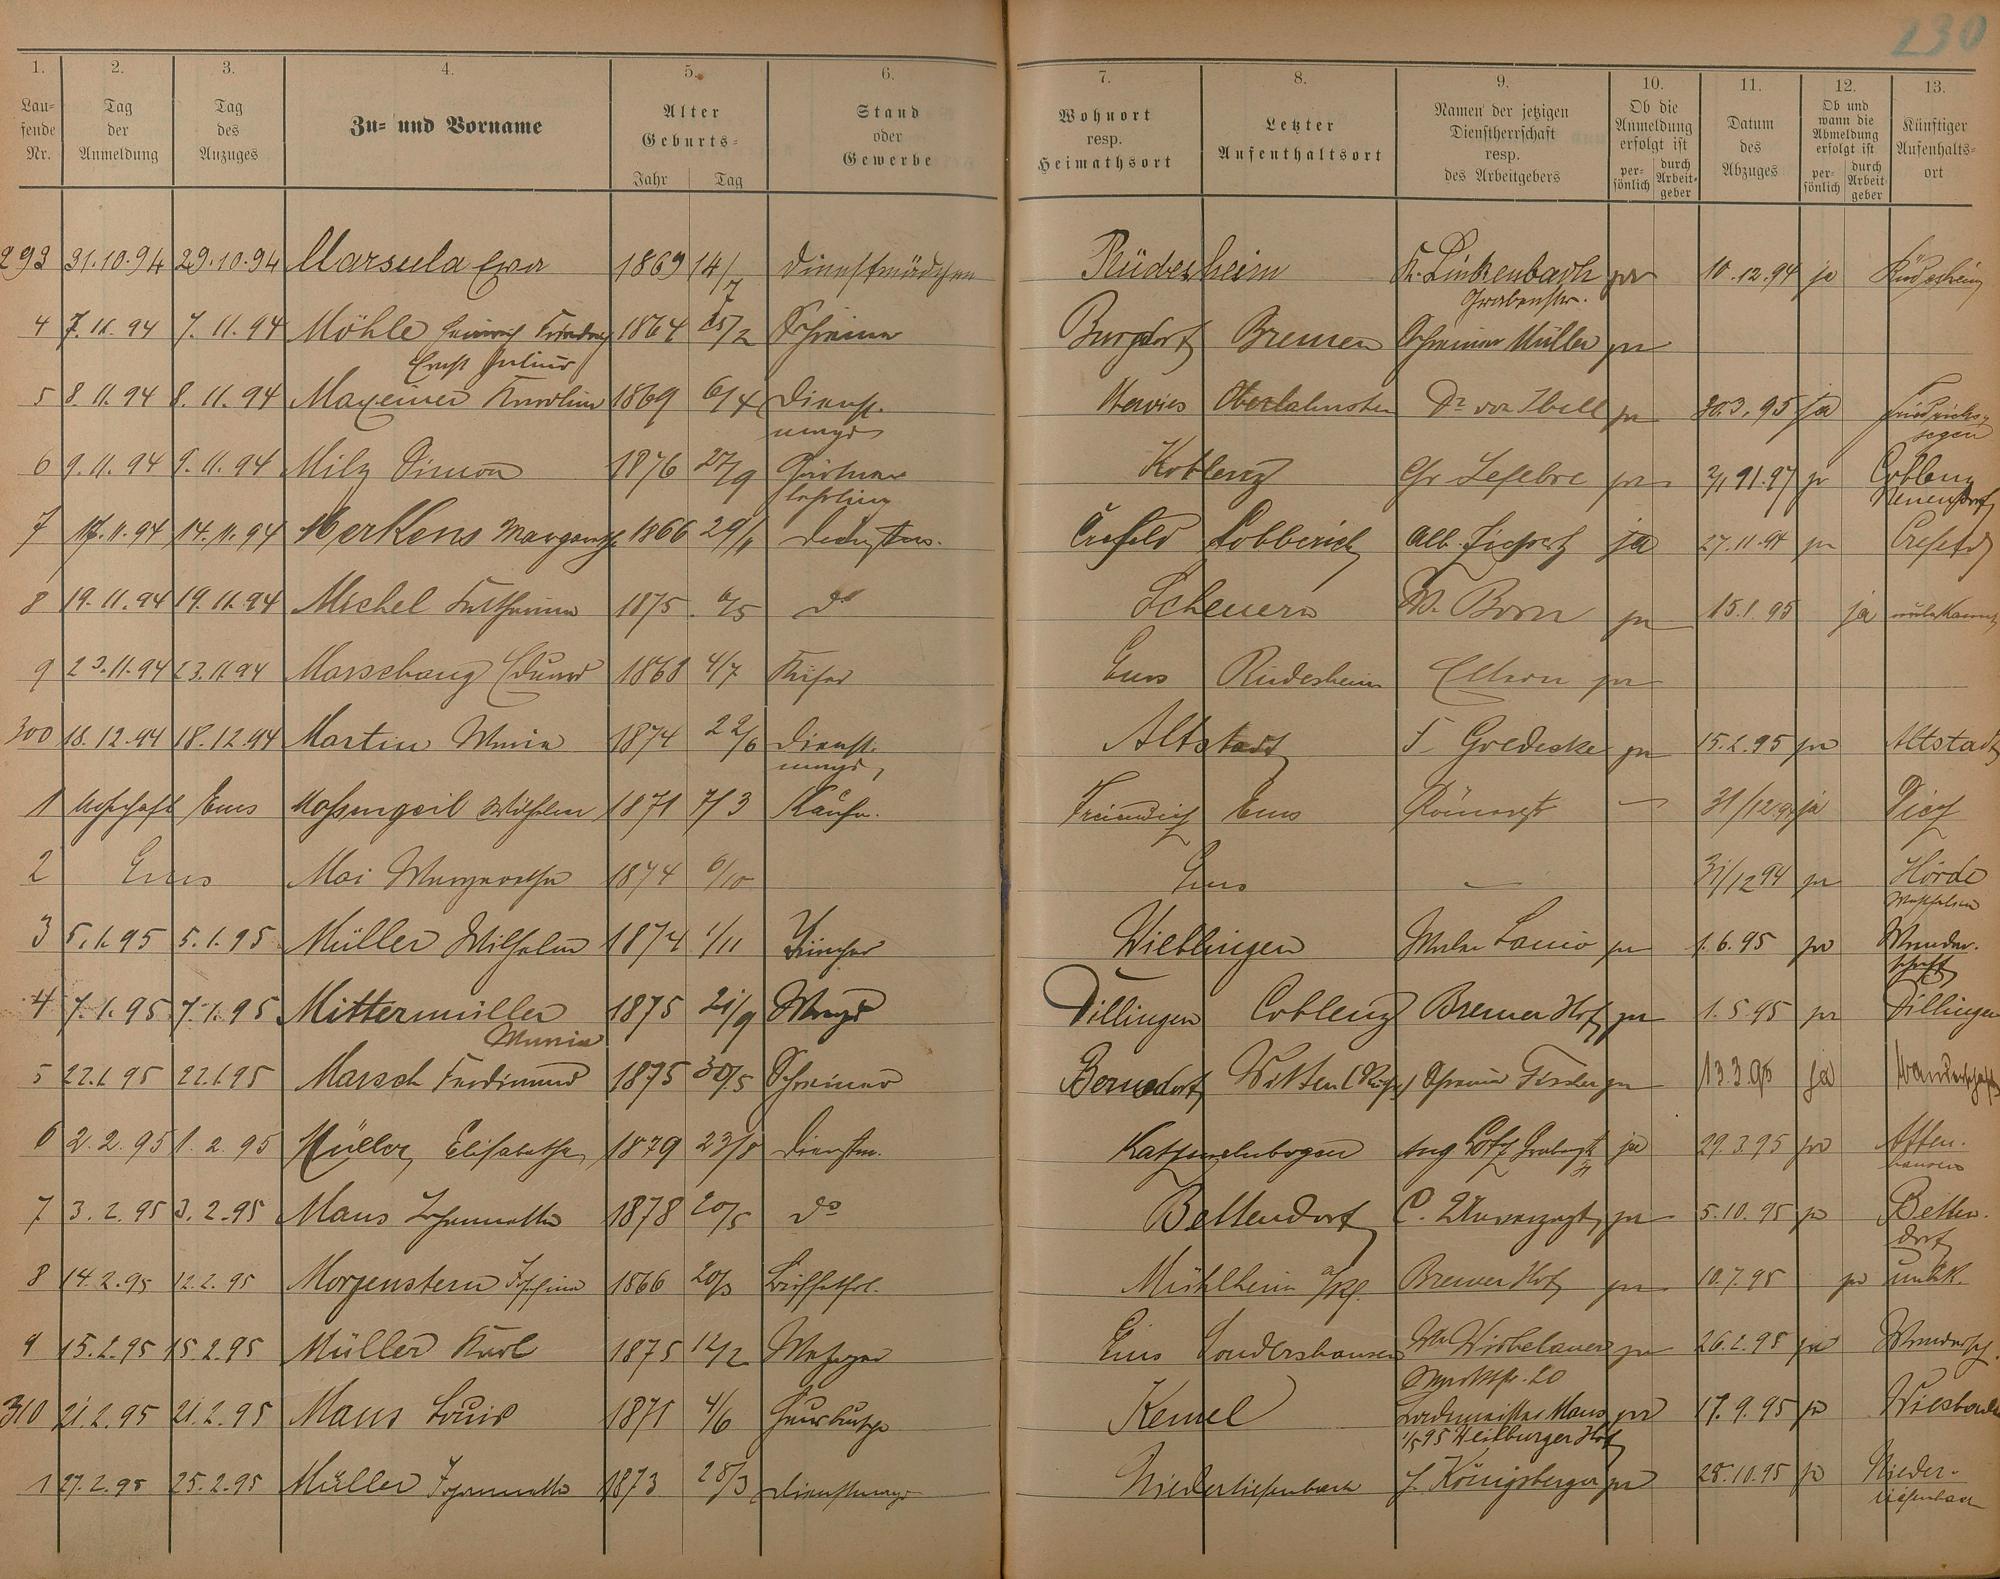 230
1. 2. 3. 4. 5. 6. 7. 8. 9. 10. 11. 12. 13.
Laufende Nr. Tag der Anmeldung Tag des Anzuges Zu- und Vorname Alter Geburts- Jahr Tag Stand oder Gewerbe Wohnort resp. Heimathsort Letzter Aufenthaltsort Namen der jetzigen Dienstherrschaft resp. des Arbeitgebers Ob die Anmeldung erfolgt ist persönlich durch Arbeitgeber Datum des Abzuges Ob und wann die Abmeldung erfolgt ist persönlich durch Arbeitgeber Künftiger Aufenthaltsort
293 31.10.94 29.10.94 Marsula Eva 1869 14/7 Dienstmädchen Rüdesheim Fr. Linkenbach ja 10.12.94 ja Rüdesheim
Grabenstr.
4 7.11.94 7.11.94 Möhle Heinrich Friedrich 1864 25/2 Schreiner Burgdorf Bremen Schreiner Müller ja
Ernst Julius
5 8.11.94 8.11.94 Mayeiner Karoline 1869 6/4 Dienst- Oberlahnstein Dr von Ibell ja 30.3.95 ja Friedrichs-
magd segen
6 9.11.94 9.11.94 Milz Simon 1876 27/9 Gärtner Koblenz Gr Lefebre ja Coblenz
lehrling Neuendorf
7 14.11.94 Merkens Margarethe 1866 29/1 Crefeld Lobberich Alb. ja 27.11.94 ja Crefeld
8 19.11.94 19.11.94 Michel Katharina 1875 6/5 do Scheuern W. Born ja 15.1.95 ja unbekannt
9 23.11.94 23.11.94 Marschang Eduard 1868 4/7 Küfer Ems Rüdesheim ja
300 18.12.94 18.12.94 Martin Maria 1874 22/6 Dienst- Altstadt F. Goedecke ja 15.2.95 ja Altstadt
magd
1 Ems Massengeil Wilhelm 1871 7/3 Kaufm. Ems — 31/12.94 ja Diez
2 Ems Mai Margaretha 1874 6/10 Ems — 31/12 94 ja Hörde
Westfalen
3 5.1.95 5.1.95 Müller Wilhelm 1874 1/11 Tüncher Wieblingen Maler Lanio ja 1.6.95 ja Wander-
schaft
4 7.1.95 7.1.95 Mittermüller 1875 21/9 Magd Dillingen Coblenz Bremer Hof ja 1.5.95 ja Dillingen
Maria
5 22.1.95 22.1.95 Marsch Ferdinand 1875 30/5 Schreiner Bernsdorf Witten (Ruhr) Schreiner Fischer ja 13.3.95 ja Wanderschaft
6 2.2.95 1.2.95 Müller Elisabetha 1879 23/8 Dienstm. Katzenelnbogen Aug ja 29.3.95 ja Atten-
hausen
7 3.2.95 3.2.95 Maus Johannette 1878 20/5 do Bettendorf C. Unverzagt ja 5.10.95 ja Betten-
dorf
8 14.2.95 12.2.95 Morgenstern Josefine 1866 20/3 Mühlheim a/Rh. Bremer Hof ja 10.7.95 ja unbek.
9 15.2.95 15.2.95 Müller Karl 1875 12/2 Metzger Ems Sondershausen Wirbelauer ja 26.2.95 ja Wandersch.
Marktstr. 20
310 21.2.95 21.2.95 Maus Louis 1871 4/6 Hausbursche Kemel Bademeister Maus ja 17.9.95 ja Wiesbaden
1/5 95 Weilburger Hof
1 27.2.95 25.2.95 Müller Johannette 1873 28/3 Dienstmagd Niedertiefenbach J. Königsberger ja 28.10.95 ja Nieder-
tiefenbach